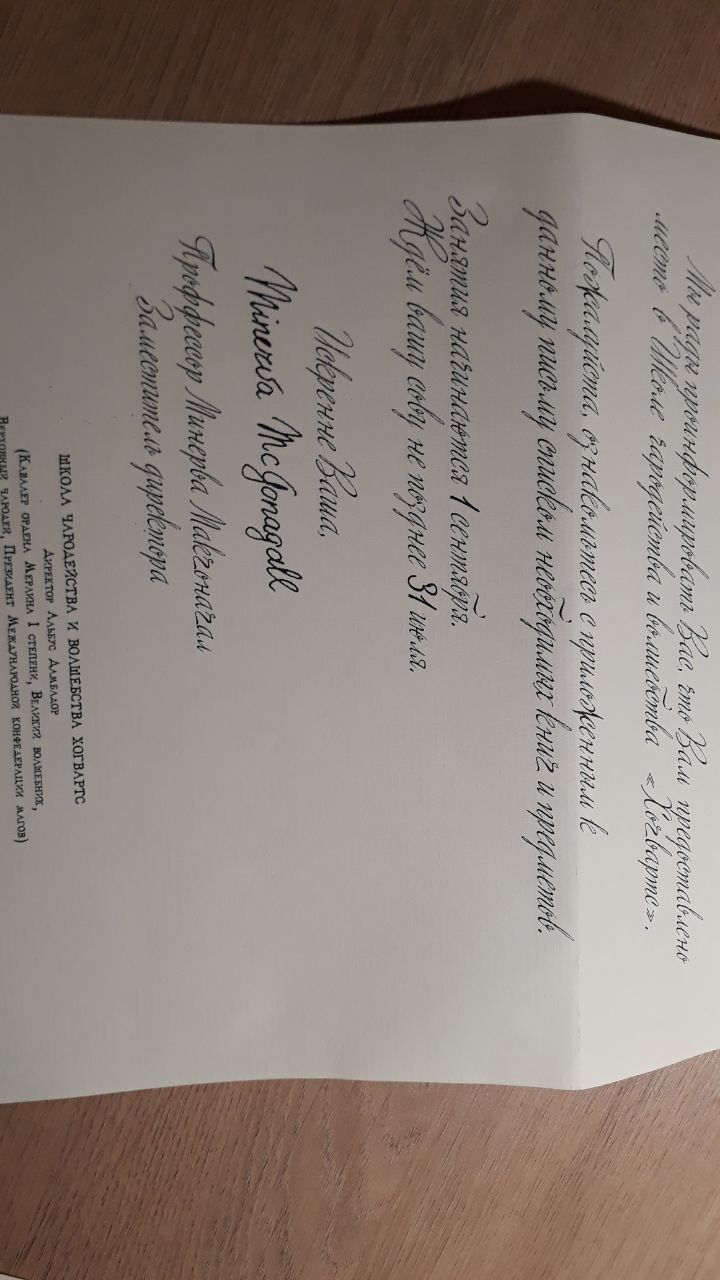 Мы рады проинформировать Вас, что Вам предоставлено
место в Школе чародейства и волшебства «Хогвартс».
Пожалуйста, ознакомьтесь с приложенным к
данному письму списком необходимых книг и предметов.
Занятия начинаются 1 сентября.
Ждём вашу сову не позднее 31 июля.
Искренне Ваша,
Minerva McGonagall
Проффессор Минерва Макгонагал
Заместитель директора
ШКОЛА ЧАРОДЕЙСТВА И ВОЛШЕБСТВА ХОГВАРТС
Директор Альбус Дамблдор
(Кавалер ордена Мерлина I степени, Великий волшебник,
Верховный чародей, Президент Международной конфедерации магов)